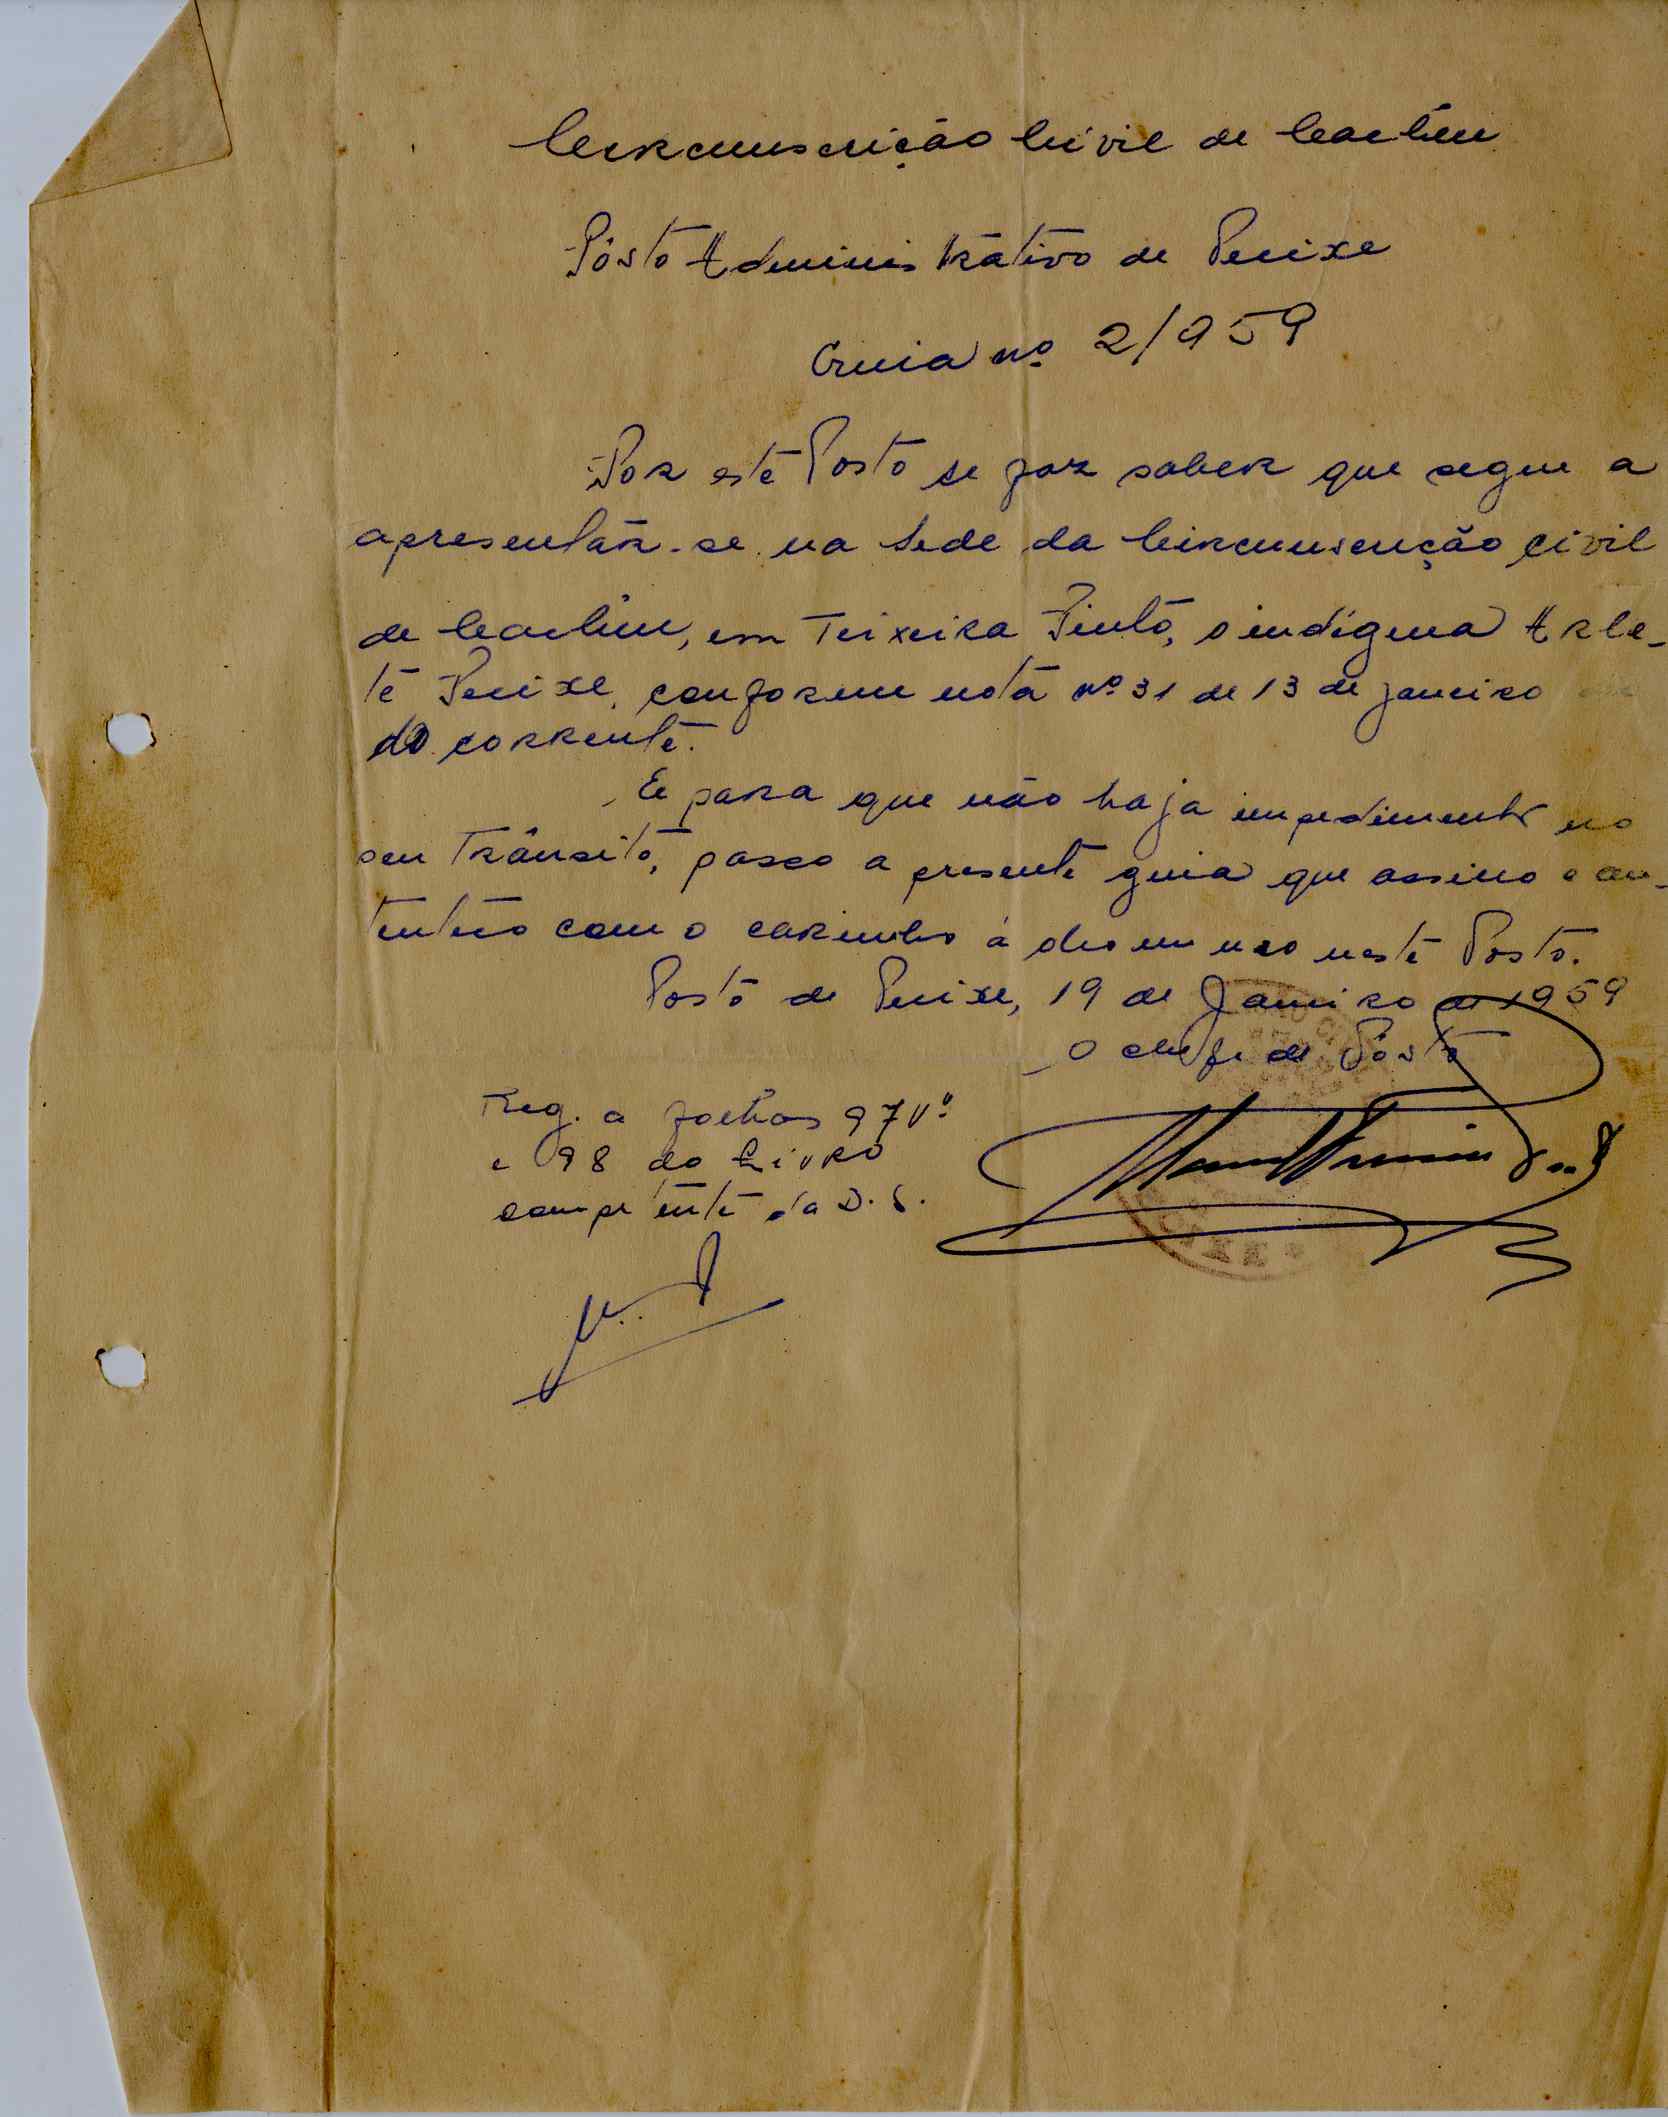 Circunscrição Civil de Cacheu
Pôsto Administrativo de Pecixe
Guia nº 2/959
Por este Posto se faz saber que segue a
apresentar-se na Sede da Circunscrição Civil
de Cacheu, em Teixeira Pinto, o indígena Arle-
te Pecixe, conforme nota nº 31 de 13 de janeiro
do corrente.
E para que não haja impedimento no
seu trânsito, passo a presente guia que assino e au-
tentico com o carimbo a óleo em uso neste Posto.
Posto de Pecixe, 19 de Janeiro de 1959
O chefe de Pôsto
Reg. a folhas 97 vº
e 98 do Livro
competente da D.S.